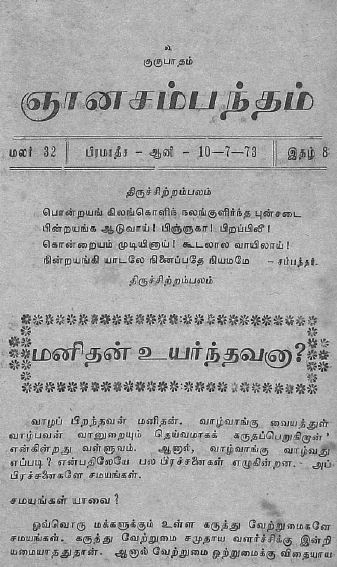 உ
குருபாதம்
ஞானசம்பந்தம்
மலர் 32 பிரமாதீச - ஆனி - 10-7-73 இதழ் 8
திருச்சிற்றம்பலம்
பொன்றயங் கிலங்கொளிந் நலங்குளிர்ந்த புன்சடை
பின்றயங்க ஆடுவாய்! பிஞ்ஞகா! பிறப்பிலீ!
கொன்றையம் முடியினாய்! கூடலால வாயிலாய்!
நின்றயங்கி யாடலே நினைப்பதே நியமமே - சம்பந்தர்.
திருச்சிற்றம்பலம்
மனிதன் உயர்ந்தவனா?
வாழப் பிறந்தவன் மனிதன். வாழ்வாங்கு வையத்துள்
வாழ்பவன் வானுறையும் தெய்வமாகக் கருதப்பெறுகிறான்
என்கின்றது வள்ளுவம். ஆனால், வாழ்வாங்கு வாழ்வது
எப்படி? என்பதிலேயே பல பிரச்சனைகள் எழுகின்றன. அப்
பிரச்சனைகளே சமயங்கள்.
சமயங்கள் யாவை?
ஒவ்வொரு மக்களுக்கும் உள்ள கருத்து வேற்றுமைகளே
சமயங்கள். கருத்து வேற்றுமை சமுதாய வளர்ச்சிக்கு இன்றி
யமையாததுதான். ஆனால் வேற்றுமை ஒற்றுமைக்கு விதையாய